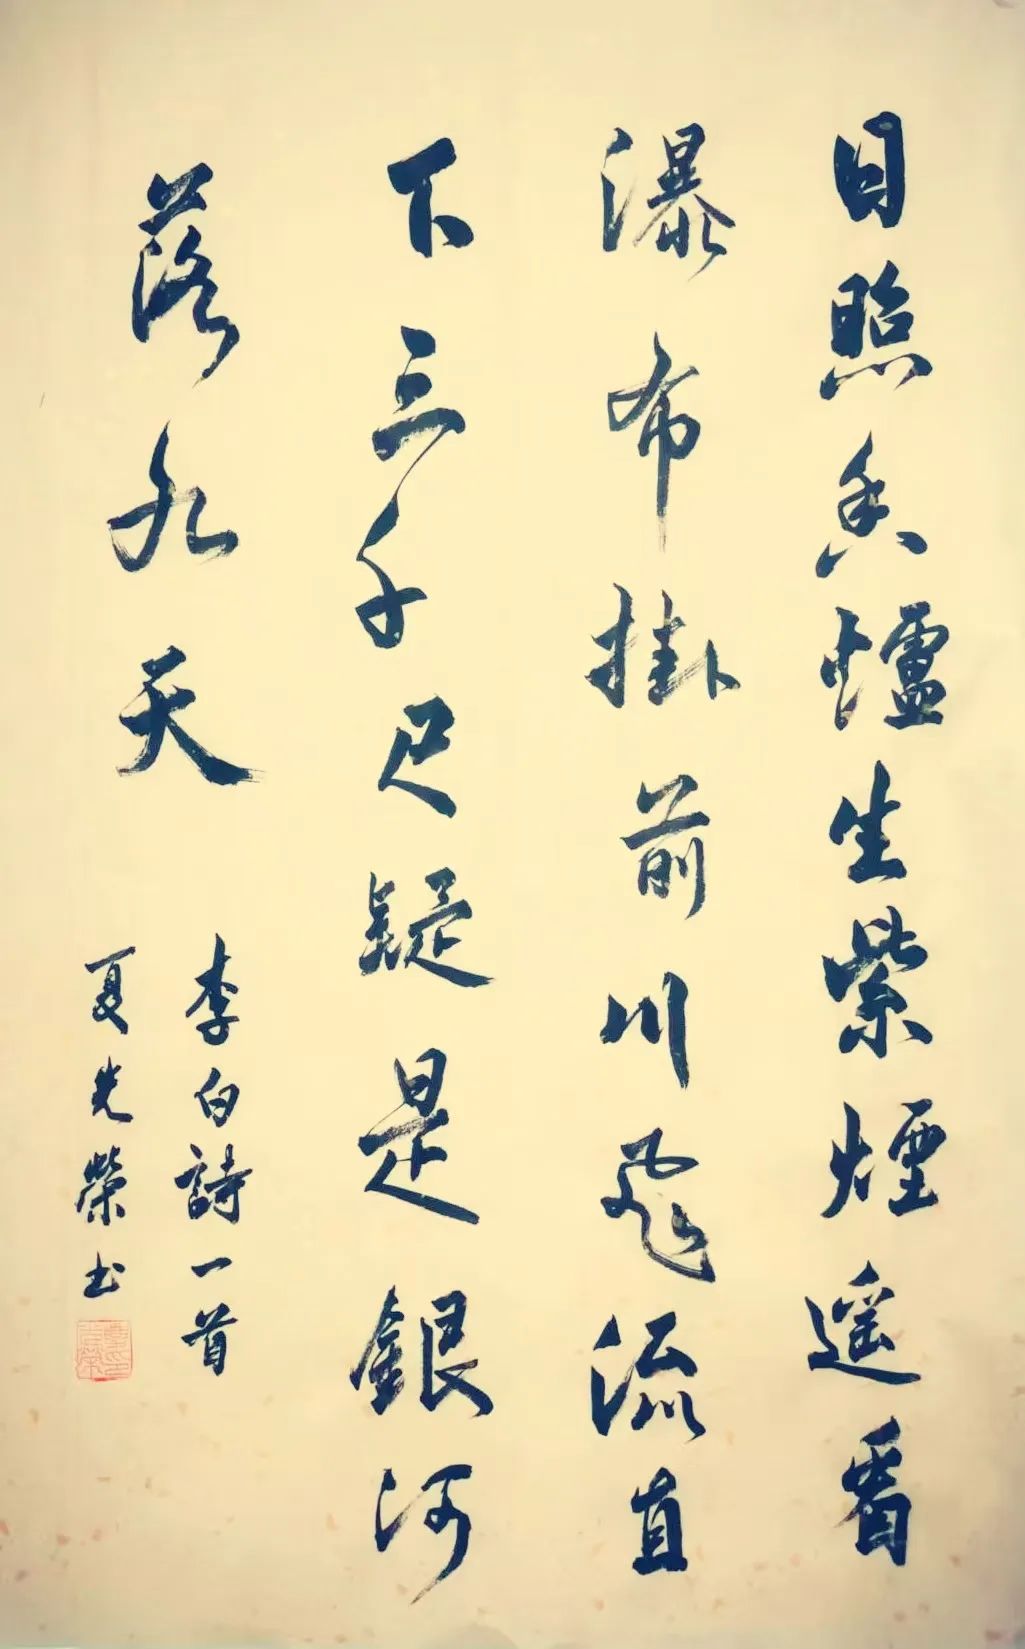 日照香爐生紫煙遥看
瀑布掛前川飛流直
下三千尺疑是銀河
落九天
李白詩一首
夏光榮书